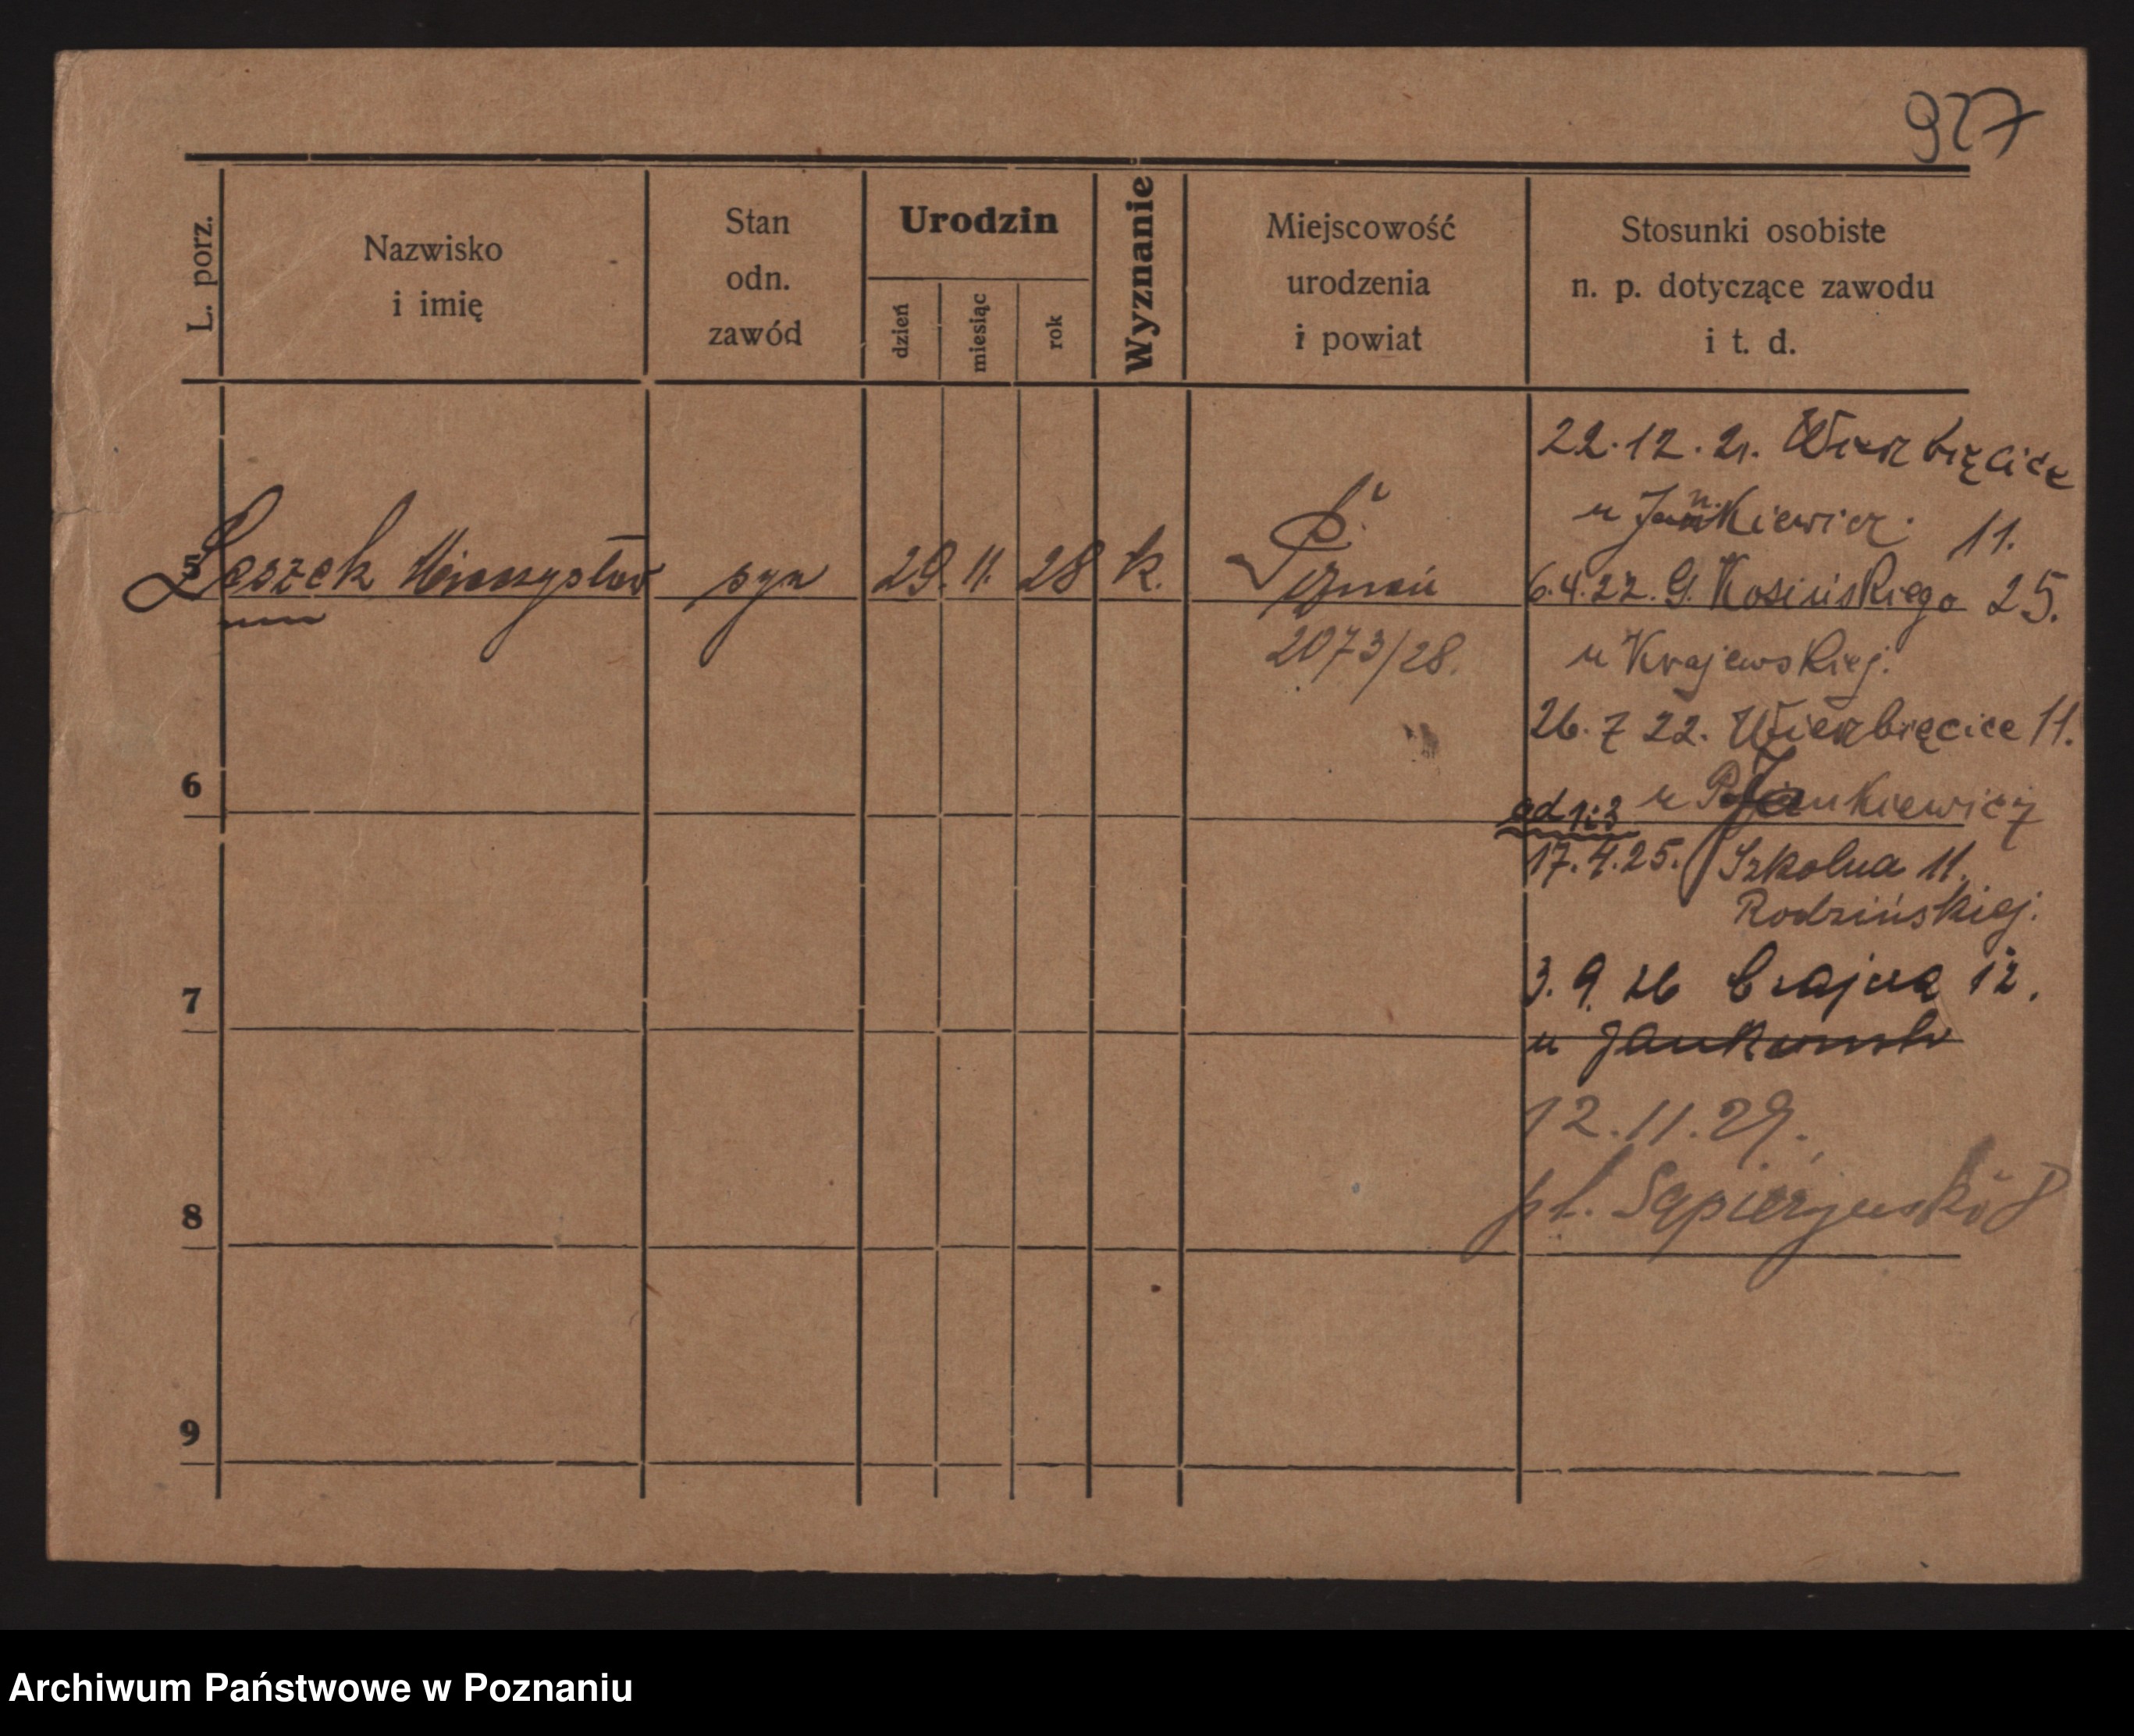 927
L. porz.
Nazwisko
i imię
Stan
odn.
zawód
Urodzin
dzień
miesiąc
rok
Wyznanie
Miejscowość
urodzenia
i powiat
Stosunki osobiste
n. p. dotyczące zawodu
i t. d.
5 Leszek Mieczysław syn 29. 11. 28 k. Poznań
2073/28.
22.12.21. Wierzbięcice
u Jankiewicz. 11.
6.4.22. G. Kosińskiego 25.
u Krajewskiej.
26.7 22. Wierzbięcice 11.
u Jankiewicz
od 1i3
17.4.25. Szkolna 11.
Rodzińskiej.
3.9.26 Czajcza 12.
u
12.11.29.
pl. Sapieżyński 8
6
7
8
9
Archiwum Państwowe w Poznaniu